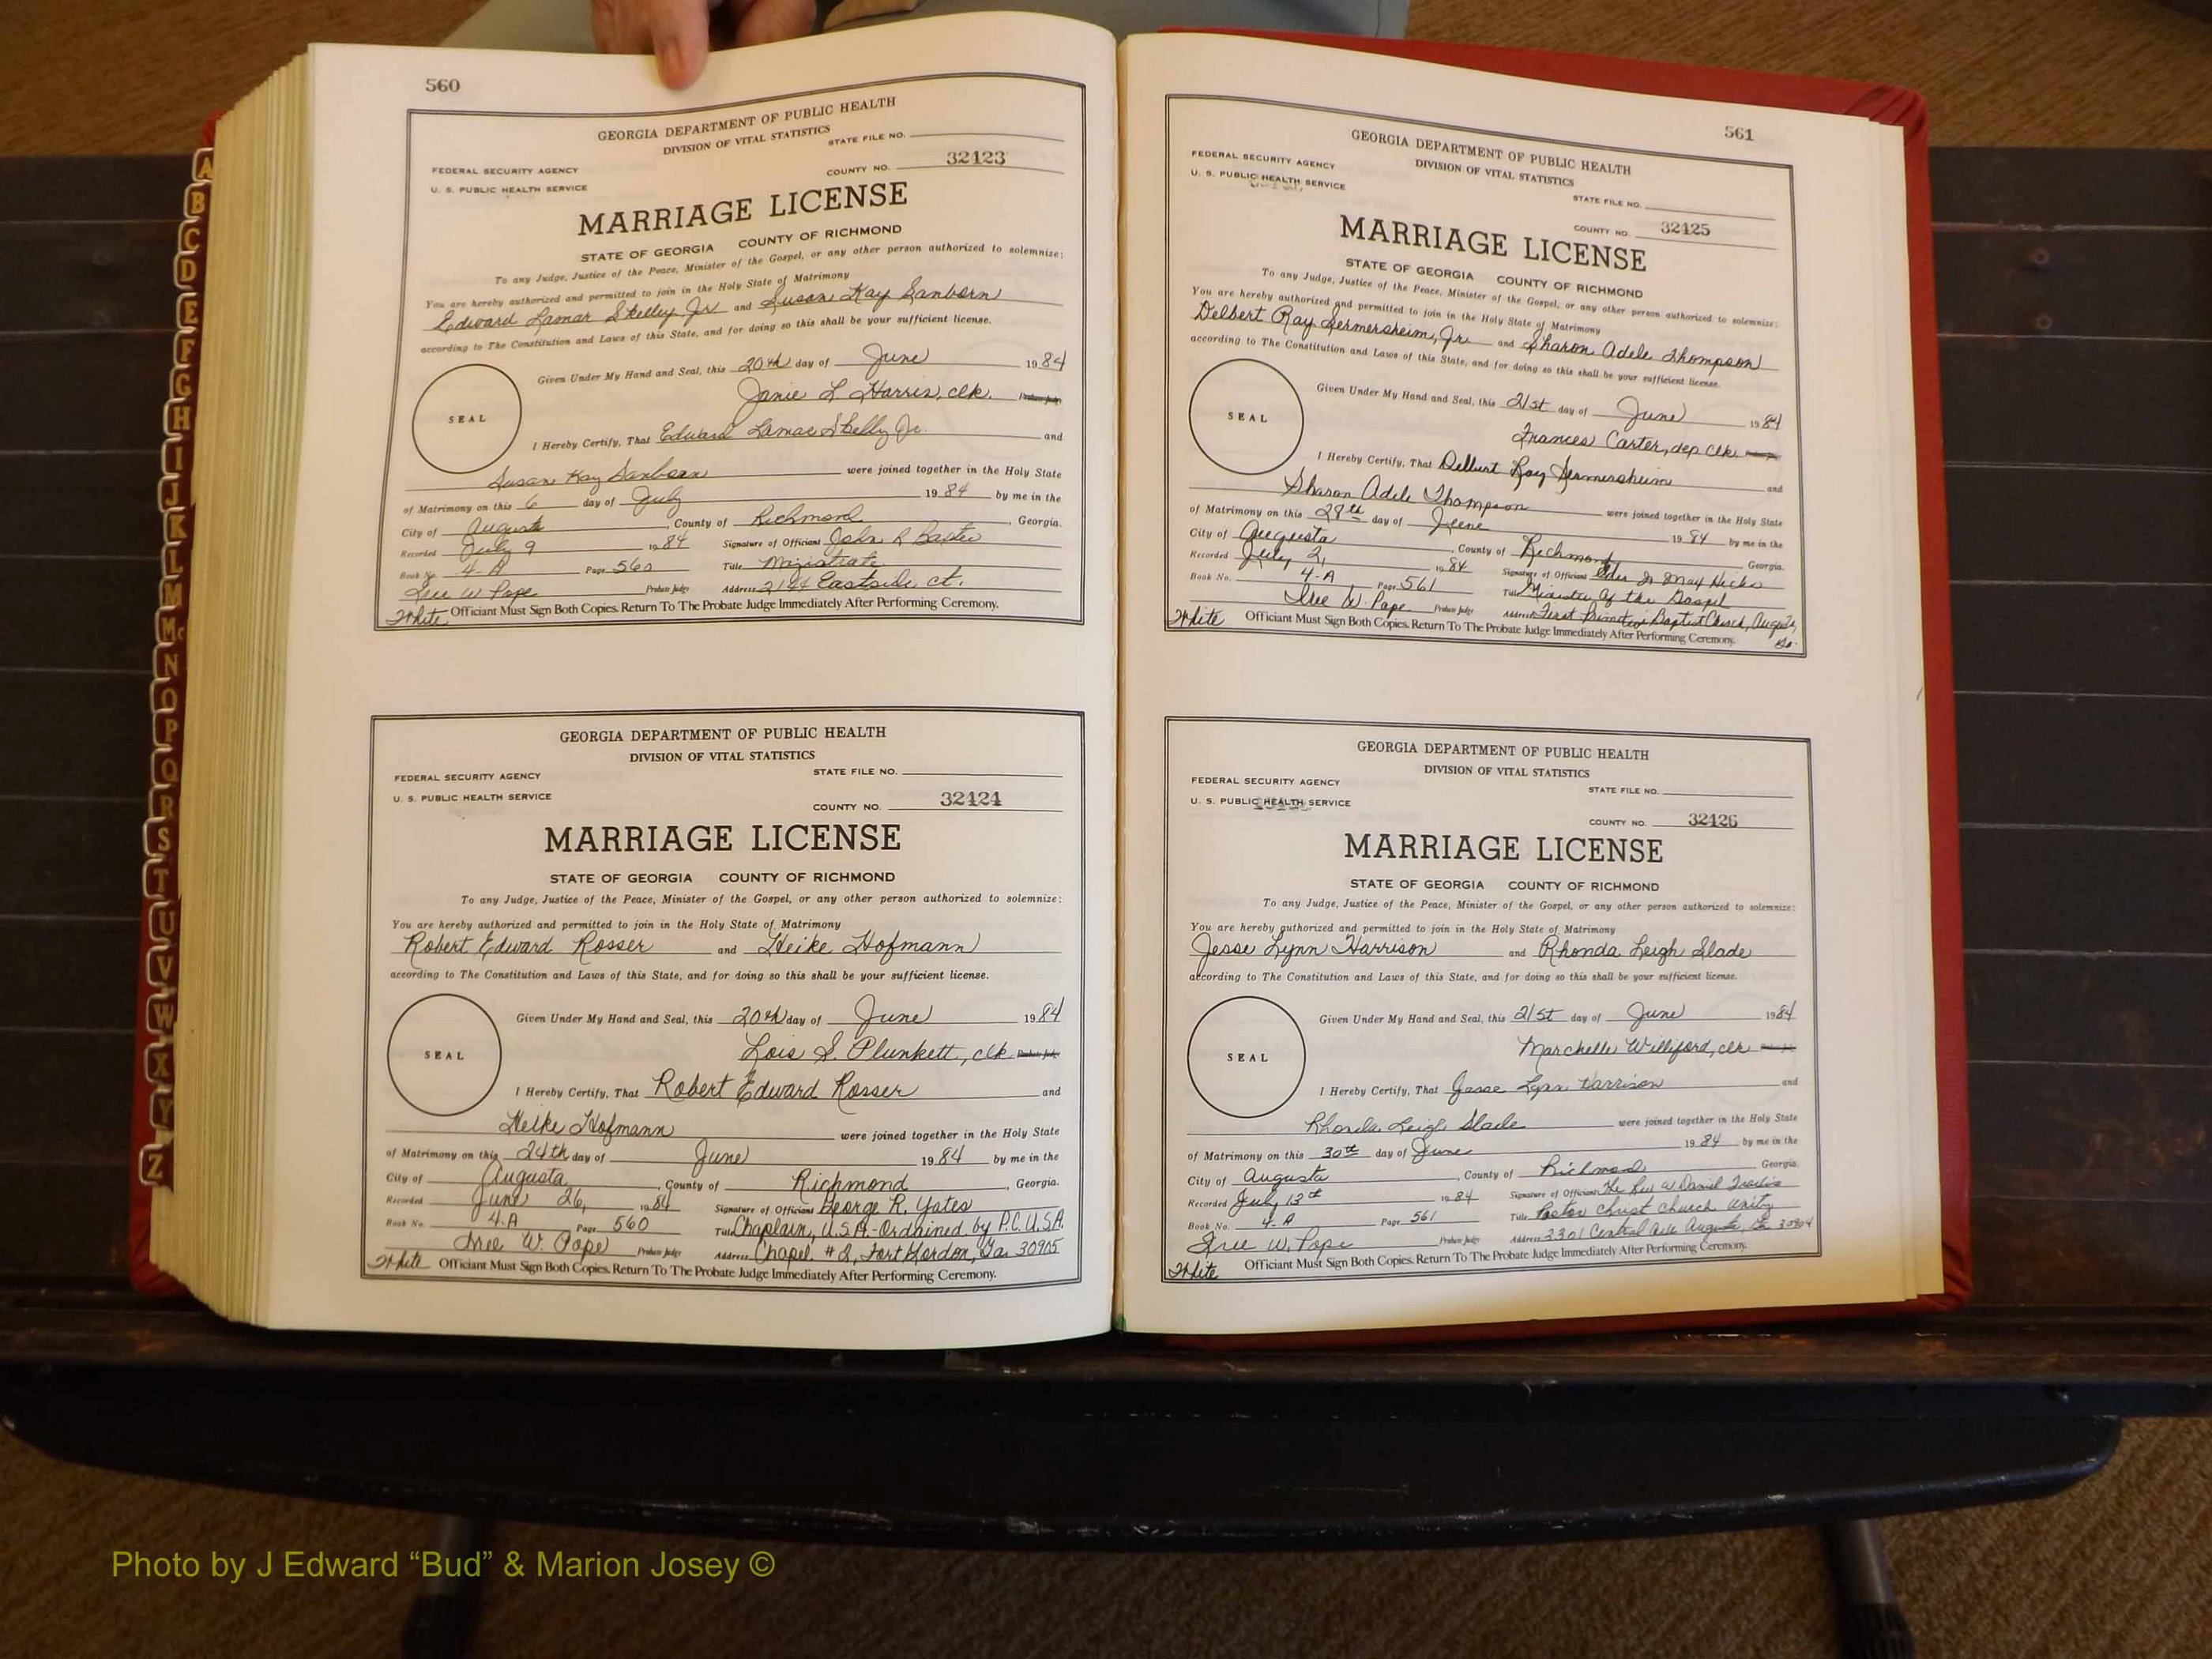 560
GEORGIA DEPARTMENT OF PUBLIC HEALTH
DIVISION OF VITAL STATISTICS
STATE FILE NO.
FEDERAL SECURITY AGENCY
COUNTY NO. 32123
U. S. PUBLIC HEALTH SERVICE
MARRIAGE LICENSE
STATE OF GEORGIA COUNTY OF RICHMOND
To any Judge, Justice of the Peace, Minister of the Gospel, or any other person authorized to solemnize:
You are hereby authorized and permitted to join in the Holy State of Matrimony
Edward Lamar Skelley Jr and Susan Kay Sanborn
according to The Constitution and Laws of this State, and for doing so this shall be your sufficient license.
Given Under My Hand and Seal, this 20th day of June 1984
Janie L Harris, clk. Probate Judge
SEAL
I Hereby Certify, That Edward Lamar Skelly Jr. and
Susan Kay Sanborn were joined together in the Holy State
of Matrimony on this 6 day of July 1984 by me in the
City of Augusta, County of Richmond, Georgia.
Recorded July 9 1984 Signature of Officiant John R Baxter
Book No. 4-A Page 560 Title Magistrate
W. Pope Probate Judge Address 2144 Eastside ct.
White Officiant Must Sign Both Copies. Return To The Probate Judge Immediately After Performing Ceremony.
GEORGIA DEPARTMENT OF PUBLIC HEALTH
DIVISION OF VITAL STATISTICS
FEDERAL SECURITY AGENCY STATE FILE NO.
U. S. PUBLIC HEALTH SERVICE COUNTY NO. 32124
MARRIAGE LICENSE
STATE OF GEORGIA COUNTY OF RICHMOND
To any Judge, Justice of the Peace, Minister of the Gospel, or any other person authorized to solemnize:
You are hereby authorized and permitted to join in the Holy State of Matrimony
Robert Edward Rosser and Heike Hofmann
according to The Constitution and Laws of this State, and for doing so this shall be your sufficient license.
Given Under My Hand and Seal, this 20th day of June 1984
Lois S. Plunkett, clk Probate Judge
SEAL
I Hereby Certify, That Robert Edward Rosser and
Heike Hofmann were joined together in the Holy State
of Matrimony on this 24th day of June 1984 by me in the
City of Augusta, County of Richmond, Georgia.
Recorded June 26, 1984 Signature of Officiant George R. Yates
Book No. 4-A Page 560 Title Chaplain, U.S.A-Ordained by P.C.U.S.A.
W. Pope Probate Judge Address Chapel #2, Fort Gordon, Ga 30905
White Officiant Must Sign Both Copies. Return To The Probate Judge Immediately After Performing Ceremony.
561
GEORGIA DEPARTMENT OF PUBLIC HEALTH
FEDERAL SECURITY AGENCY DIVISION OF VITAL STATISTICS
U. S. PUBLIC HEALTH SERVICE
STATE FILE NO.
COUNTY NO. 32125
MARRIAGE LICENSE
STATE OF GEORGIA COUNTY OF RICHMOND
To any Judge, Justice of the Peace, Minister of the Gospel, or any other person authorized to solemnize:
You are hereby authorized and permitted to join in the Holy State of Matrimony
Delbert Ray Sermersheim, Jr. and Sharon Adele Thompson
according to The Constitution and Laws of this State, and for doing so this shall be your sufficient license.
Given Under My Hand and Seal, this 21st day of June 1984
Frances Carter, dep clk
SEAL
I Hereby Certify, That Delbert Ray Sermersheim and
Sharon Adele Thompson were joined together in the Holy State
of Matrimony on this 28th day of June 1984 by me in the
City of Augusta, County of Richmond Georgia.
Recorded July 2, 1984 Signature of Officiant Max Hicks
Book No. 4-A Page 561 Title Minister Of the Gospel
W. Pope Probate Judge Address First Primitive Baptist Church, Augusta,
Ga.
White Officiant Must Sign Both Copies. Return To The Probate Judge Immediately After Performing Ceremony.
GEORGIA DEPARTMENT OF PUBLIC HEALTH
DIVISION OF VITAL STATISTICS
FEDERAL SECURITY AGENCY
STATE FILE NO.
U. S. PUBLIC HEALTH SERVICE
COUNTY NO. 32126
MARRIAGE LICENSE
STATE OF GEORGIA COUNTY OF RICHMOND
To any Judge, Justice of the Peace, Minister of the Gospel, or any other person authorized to solemnize:
You are hereby authorized and permitted to join in the Holy State of Matrimony
Jesse Lynn Harrison and Rhonda Leigh Slade
according to The Constitution and Laws of this State, and for doing so this shall be your sufficient license.
Given Under My Hand and Seal, this 21st day of June 1984
Marchelle Williford, clk
SEAL
I Hereby Certify, That Jesse Lynn Harrison and
Rhonda Leigh Slade were joined together in the Holy State
of Matrimony on this 30th day of June 1984 by me in the
City of Augusta, County of Richmond Georgia.
Recorded July 13th 1984 Signature of Officiant The Rev W Daniel
Book No. 4-A Page 561 Title Pastor Christ Church Unity
W. Pope Probate Judge Address 2301 Central Ave Augusta, Ga 30904
White Officiant Must Sign Both Copies. Return To The Probate Judge Immediately After Performing Ceremony.
A
B
C
D
E
F
G
H
I
J
K
L
M
Mc
N
O
P
Q
R
S
T
U
V
W
X
Y
Z
Photo by J Edward “Bud” & Marion Josey ©